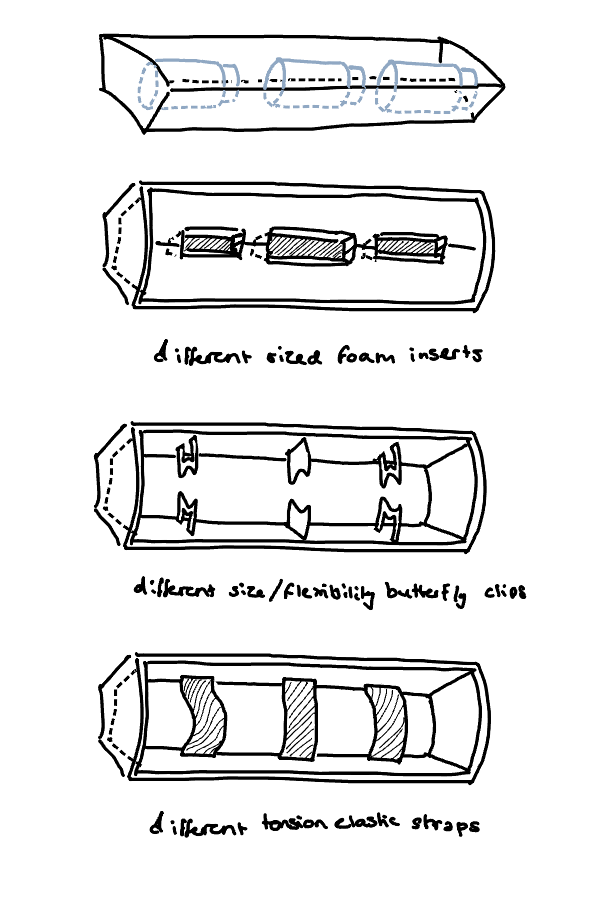 different sized foam inserts
different size/flexibility butterfly clips
different tension elastic straps